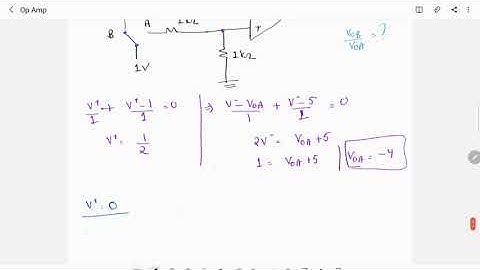 Op Amp
A 1kΩ
+
B
1kΩ
1V
V_OB/V_OA = ?
V⁺/1 + (V⁺-1)/1 = 0
V⁺ = 1/2
⇒ (V⁻-V_OA)/1 + (V⁻-5)/1 = 0
2V⁻ = V_OA+5
1 = V_OA+5
V_OA = -4
V⁺ = 0